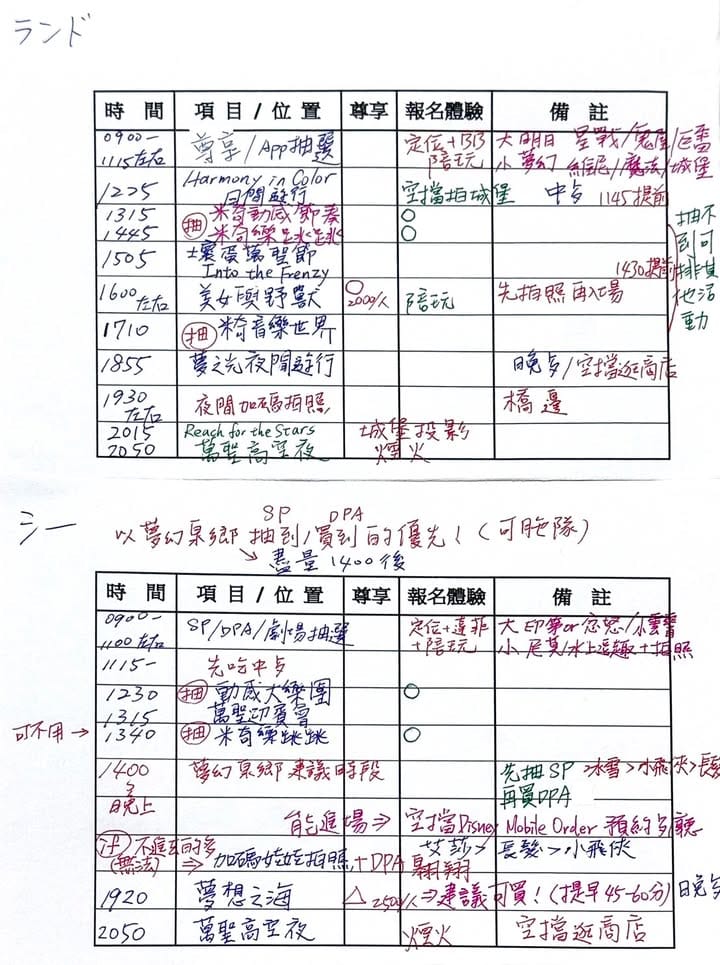 ランド
時間 項目/位置 尊享 報名體驗 備註
0900- 尊享/App抽選 定位+BB 大 明日 星戰/鬼屋/巨雷
1115左右 陪玩 小 夢幻 維尼/魔法/城堡
1225 Harmony in Color 空擋拍城堡 中午 1145提前
日間遊行
1315 抽 米奇動感節奏 ○
1445 米奇樂蹦跳 ○
1505 壞蛋萬聖節 1430提前
Into the Frenzy
抽不到可排其他活動
1600 左右 美女與野獸 ○ 2000/人 陪玩 先拍照再入場
1710 抽 米奇音樂世界
1855 夢之光夜間遊行 晚餐/空擋逛商店
1930 左右 夜間加碼拍照 橋邊
2015 Reach for the Stars 城堡投影
2050 萬聖高空夜 煙火
シー
以夢幻泉鄉 SP抽到/DPA買到的優先!(可脫隊)
↘盡量1400後
時間 項目/位置 尊享 報名體驗 備註
0900- SP/DPA/劇場抽選 定位+達菲 大 印第or忿怒/
1100左右 +陪玩 小 尼莫/水上逗趣+拍照
1115- 先吃中午
1230 抽 動感大樂團 ○
1315 萬聖迎賓會
可不用→ 1340 抽 米奇樂跳跳 ○
1400 夢幻泉鄉建議時段 先抽SP 冰雪>小飛俠>長髮
~晚上 再買DPA
能進場⇒ 空擋Disney Mobile Order 預約餐廳
註 不進去的多 艾莎> 長髮>小飛俠
(無法) ⇒ 加碼娃娃拍照+DPA 翱翔
1920 夢想之海 △ 2500/人⇒建議可買!(提早45-60分) 晚餐
2050 萬聖高空夜 煙火 空擋逛商店